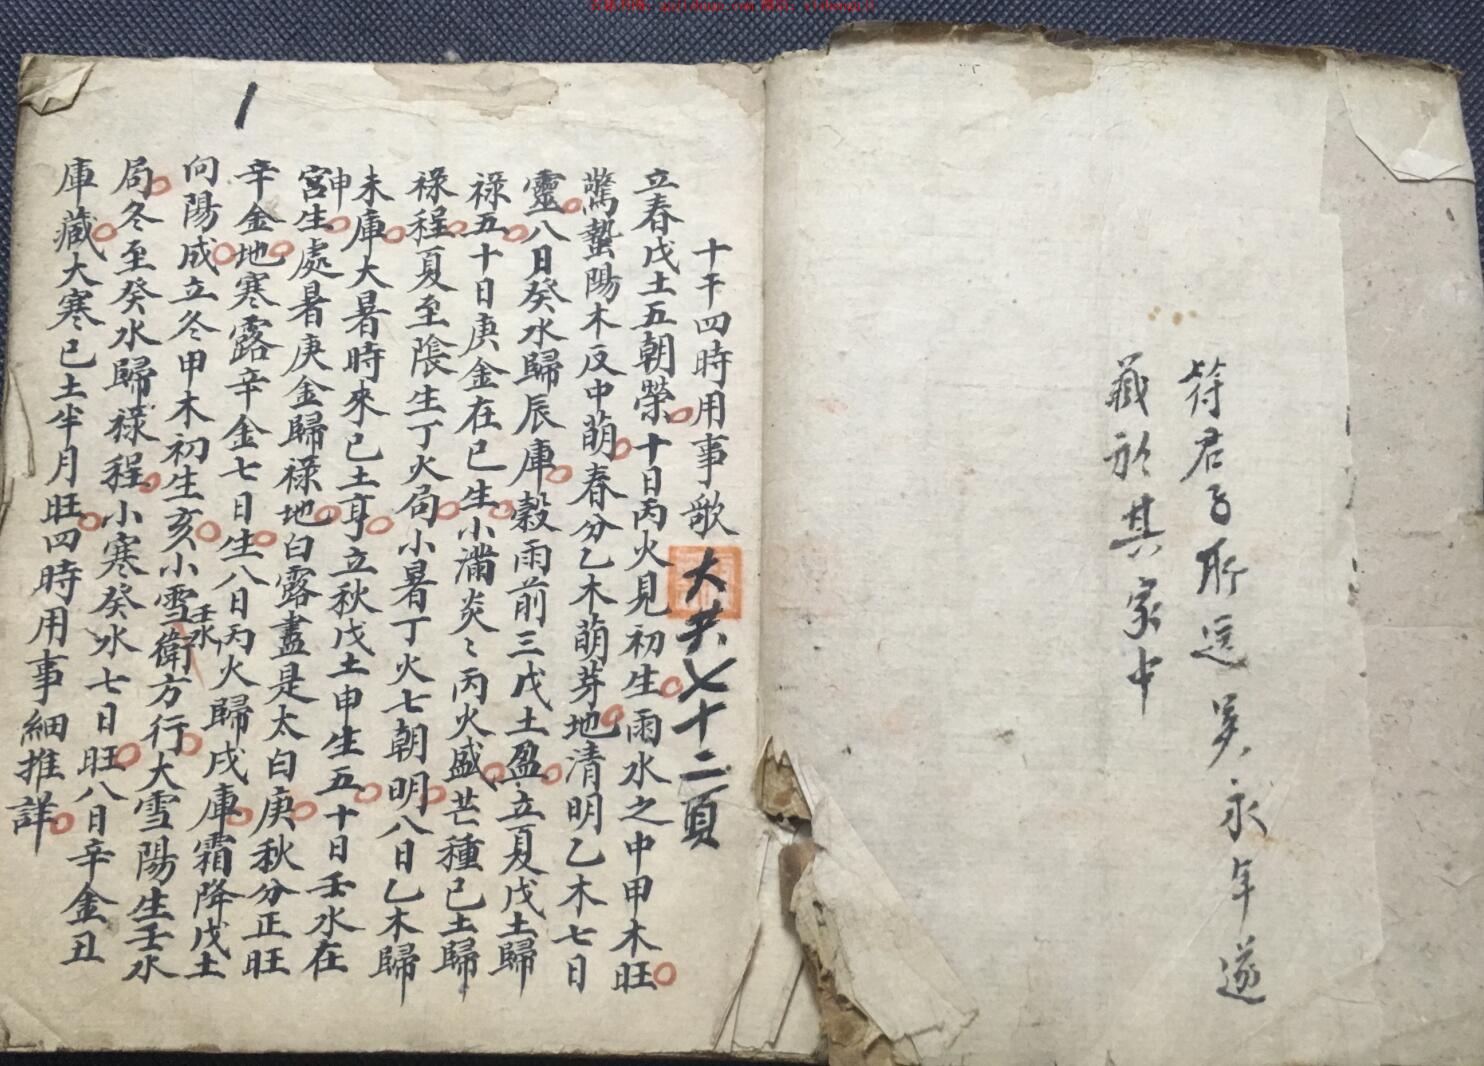 符君子所送吳永年遂
藏於其家中
十干四時用事歌
大共七十二頁
立春戊土五朝榮十日丙火見初生雨水之中甲木旺
驚蟄陽木反中萌春分乙木萌芽地清明乙木七日
靈八日癸水歸辰庫穀雨前三戊土盈立夏戊土歸
祿五十日庚金在巳生小滿炎〻丙火盛芒種已土歸
祿程夏至陰生丁火局小暑丁火七朝明八日乙木歸
未庫大暑時來已土享立秋戊土申生五十日壬水在
申
宮生處暑庚金歸祿地白露盡是太白庚秋分正旺
辛金地寒露辛金七日生八日丙火歸戌庫霜降戊土
向陽成立冬甲木初生亥小雪衛方行大雪陽生壬水
壬水
局冬至癸水歸祿程小寒癸水七日旺八日辛金丑
庫藏大寒已土半月旺四時用事細推詳